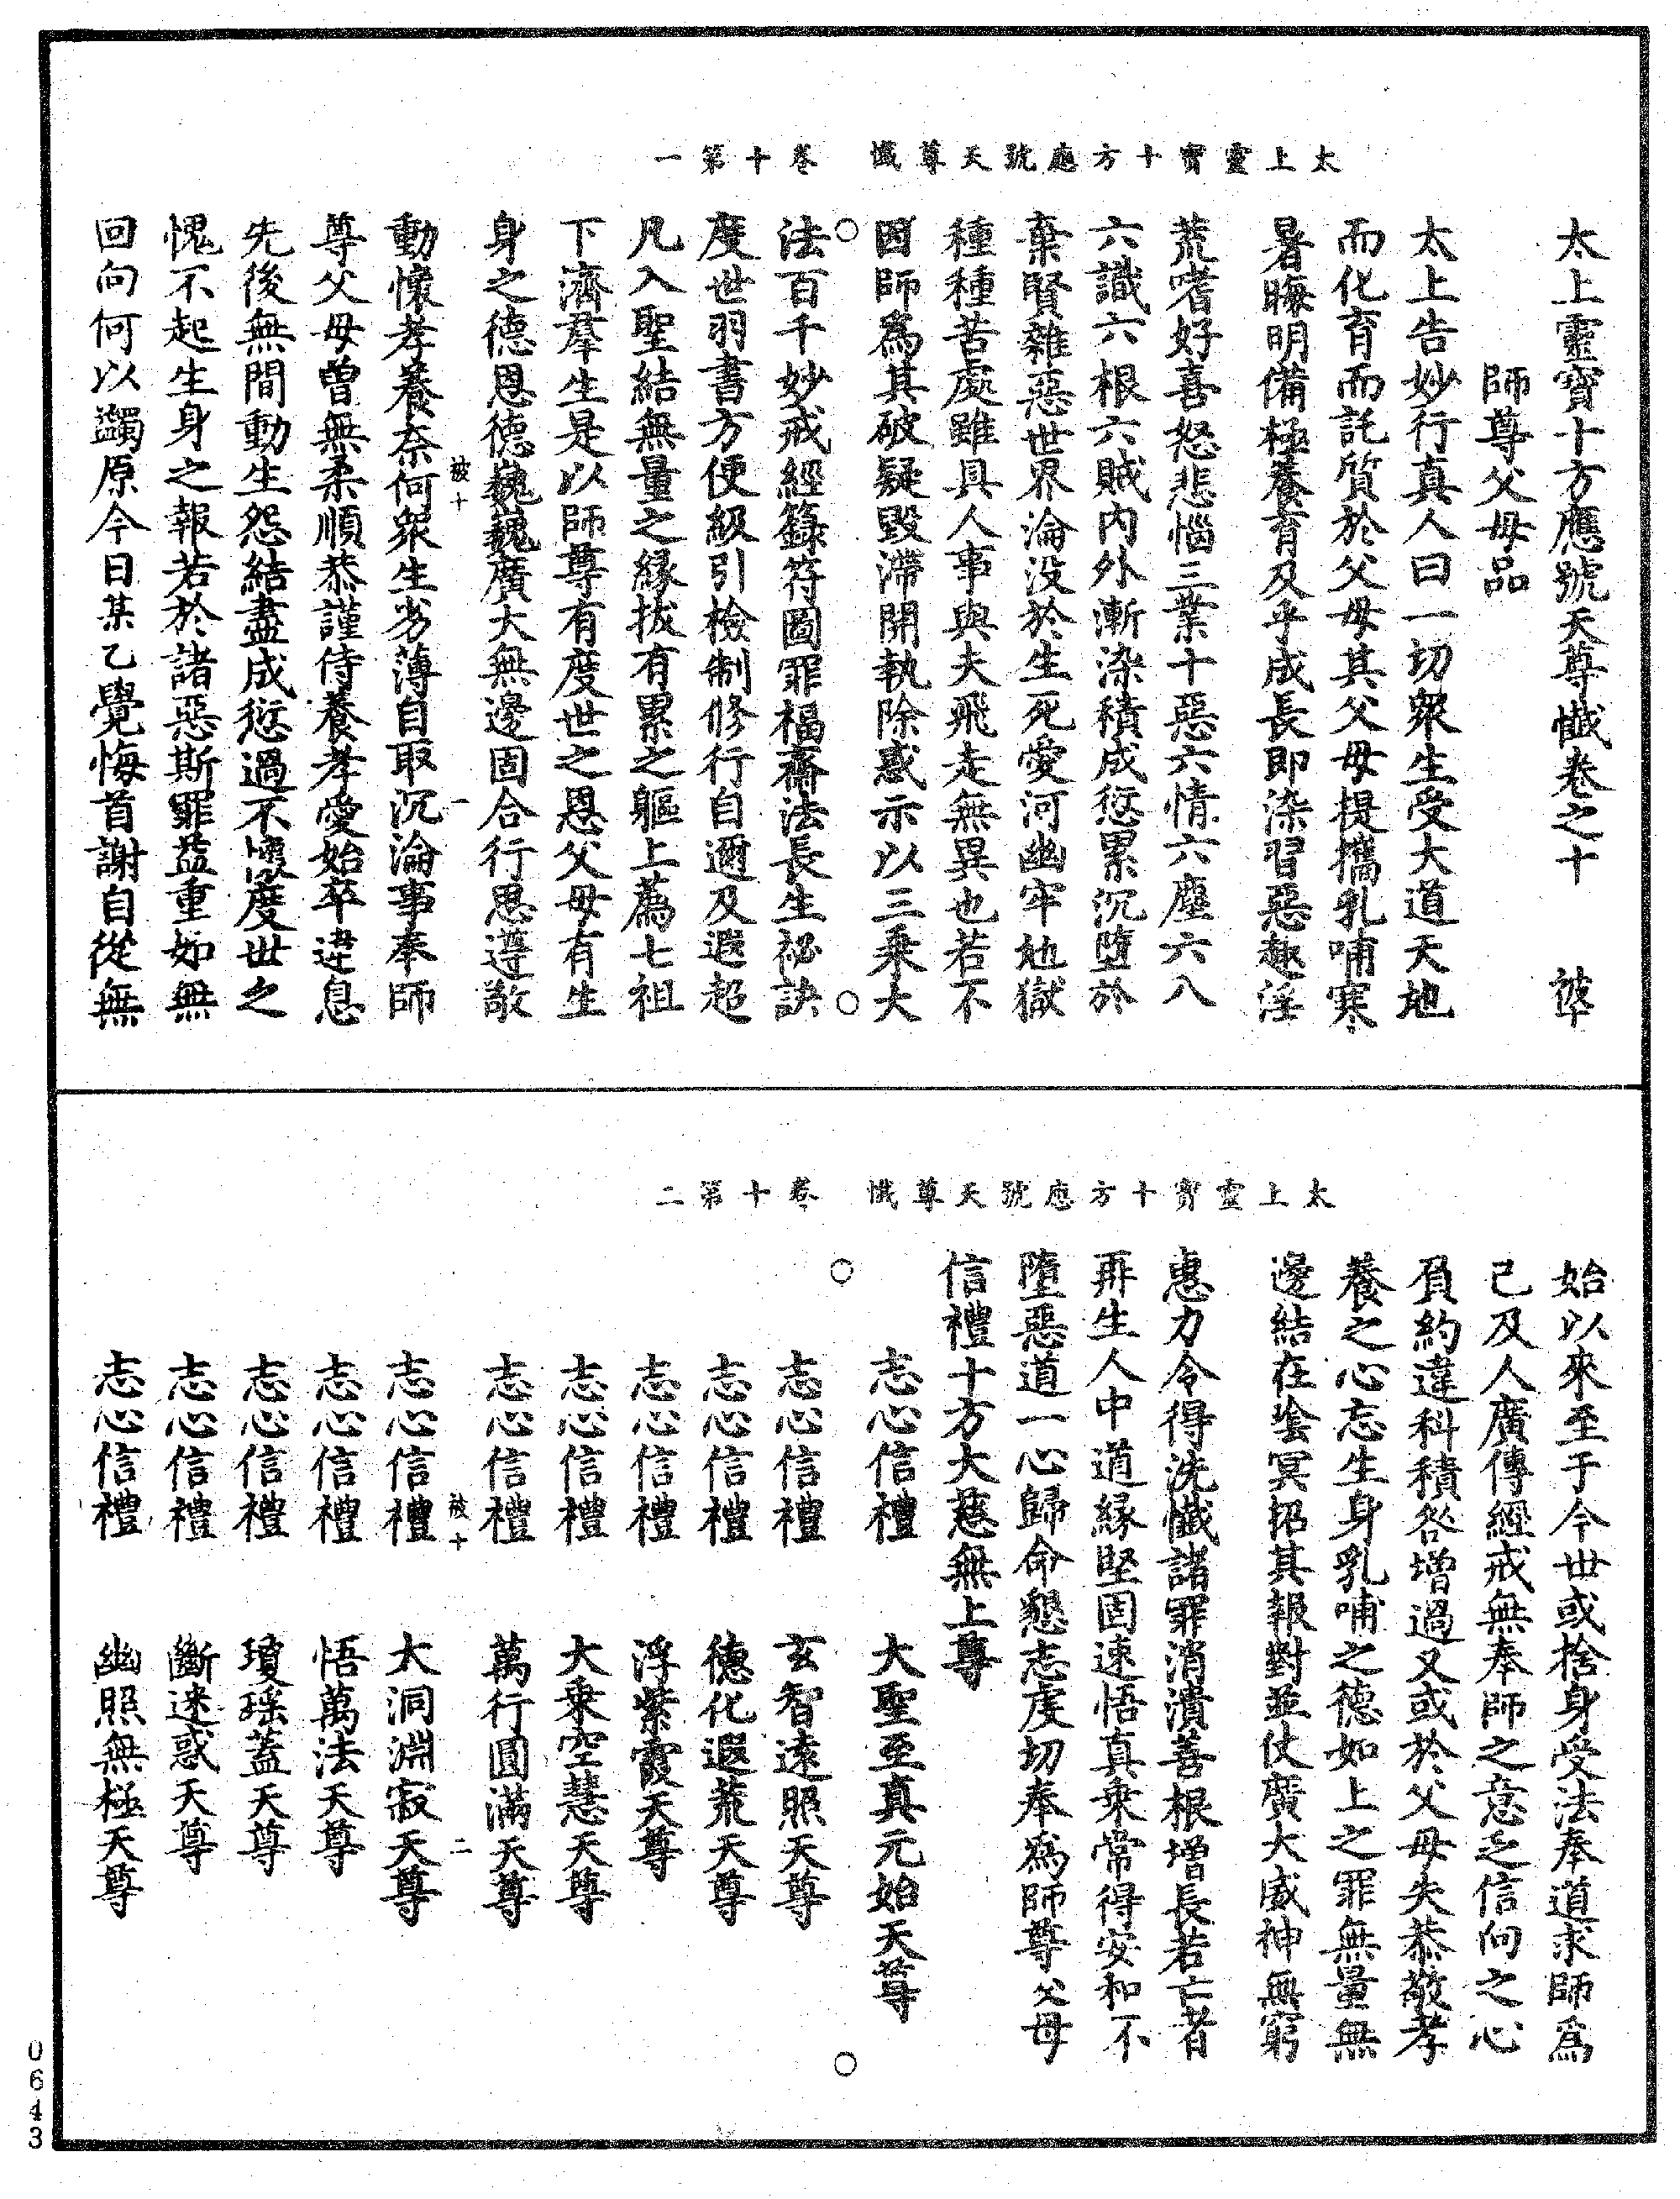 太上靈寶十方應號天尊懺　卷十第一
太上靈寶十方應號天尊懺卷之十　被十
師尊父母品
太上告妙行真人曰一切衆生受大道天地
而化育而託質於父母其父母提攜乳哺寒
暑晦明備極養育及乎成長即染習惡趣淫
荒嗜好喜怒悲惱三業十惡六情六塵六八
六識六根六賊內外漸染積成愆累沉墮於
棄賢雜惡世界淪没於生死愛河幽牢地獄
種種苦處雖具人事與夫飛走無異也若不
因師爲其破疑毀滯開執除惑示以三乘大
法百千妙戒經籙符圖罪福齋法長生祕訣
度世羽書方便級引檢制修行自邇及遐超
凡入聖結無量之緣拔有累之軀上薦七祖
下濟羣生是以師尊有度世之恩父母有生
身之德恩德巍巍廣大無邊固合行思遵敬
被十　一
動懷孝養奈何衆生劣薄自取沉淪事奉師
尊父母曾無柔順恭謹侍養孝愛始卒違息
先後無間動生怨結盡成愆過不懷度世之
愧不起生身之報若於諸惡斯罪益重如無
回向何以蠲原今日某乙覺悔首謝自從無
太上靈寶十方應號天尊懺　卷十第二
始以來至于今世或捨身受法奉道求師爲
己及人廣傳經戒無奉師之意乏信向之心
負約違科積咎增過又或於父母失恭敬孝
養之心忘生身乳哺之德如上之罪無量無
邊結在陰冥招其報對並仗廣大威神無窮
惠力令得洗懺諸罪消潰善根增長若亡者
再生人中道緣堅固速悟真乘常得安和不
墮惡道一心歸命懇志虔切奉爲師尊父母
信禮十方大慈無上尊
志心信禮　大聖至真元始天尊
志心信禮　玄智遠照天尊
志心信禮　德化遐荒天尊
志心信禮　浮紫霞天尊
志心信禮　大乘空慧天尊
志心信禮　萬行圓滿天尊
被十　二
志心信禮　大洞淵寂天尊
志心信禮　悟萬法天尊
志心信禮　瓊瑤蓋天尊
志心信禮　斷迷惑天尊
志心信禮　幽照無極天尊
0643